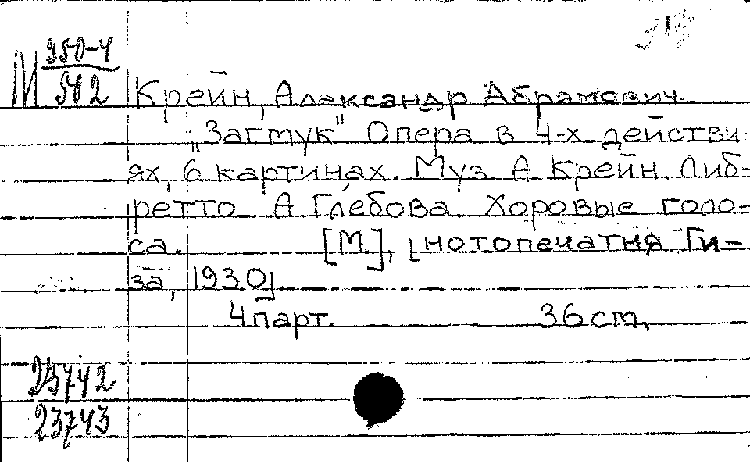 М 950-4/542
Крейн, Александр Абрамович
„Загмук" Опера в 4-х действи
ях, 6 картинах. Муз. А. Крейн. Либ-
ретто А. Глебова. Хоровые голо-
са. [М.], [нотопечатня Ги-
за, 1930]
4 парт. 36 cm.
23742
23743